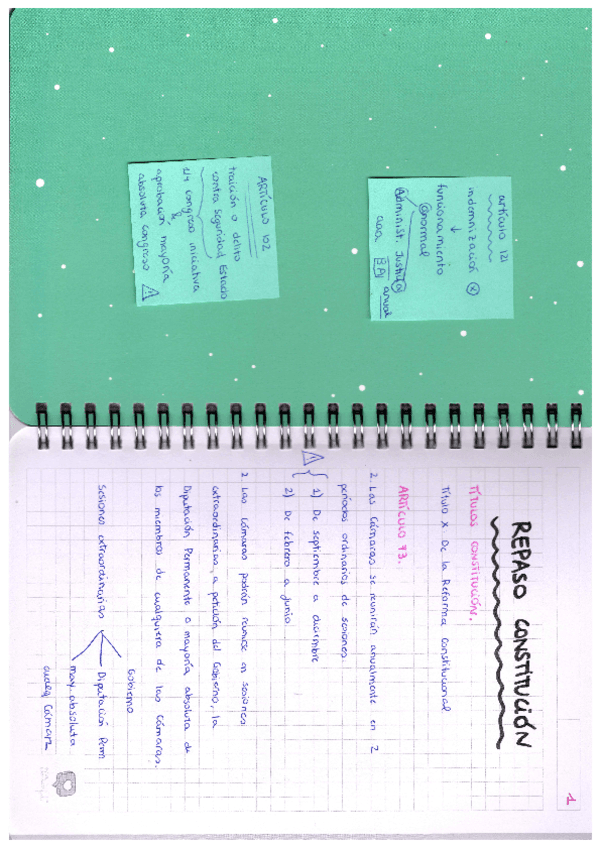 artículo 121
indemnización
↓
funcionamiento
anormal
Administ. Justicia
ARTÍCULO 102
traición o delito
contra Seguridad Estado
1/4 congreso iniciativa
&
aprobación mayoría
absoluta congreso
1
REPASO CONSTITUCIÓN
TÍTULOS CONSTITUCIÓN.
Título X De la Reforma Constitucional
ARTÍCULO 73.
2 Las Cámaras se reunirán anualmente en 2
períodos ordinarios de sesiones
1) De septiembre a diciembre
2) De febrero a junio
2 Las Cámaras podrán reunirse en sesiones
extraordinarias, a petición del Gobierno, la
Diputación Permanente o mayoría absoluta de
los miembros de cualquiera de las Cámaras.
Gobierno
Sesiones extraordinarias
Diputación Perm
may. absoluta